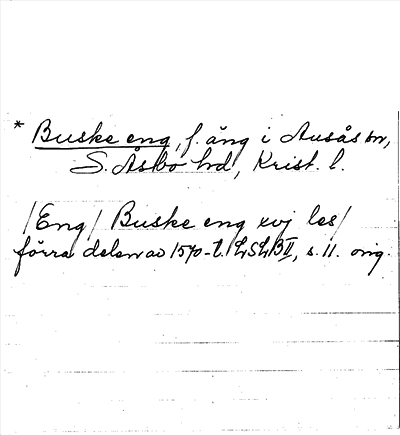 * Buske eng, f. äng i Ausås sn,
S. Åsbo hd, Krist. l.
/Eng/ Buske eng xvj les/
förra delen av 1570-t. LSLB II, s. 11. orig.